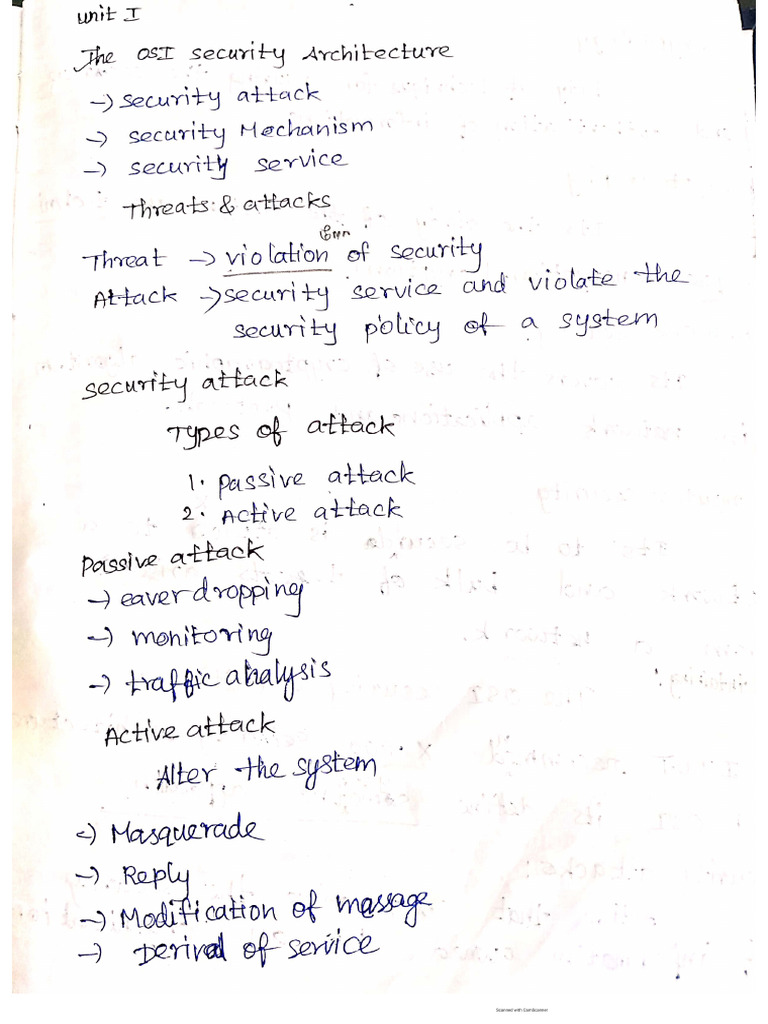 unit I
The OSI security Architecture
→ security attack
→ security Mechanism
→ security service
Threats & attacks
Threat → violation of security
Attack → security service and violate the
security policy of a system
security attack
Types of attack
1. passive attack
2. Active attack
passive attack
→ eaverdropping
→ monitoring
→ traffic analysis
Active attack
Alter the system
→ Masquerade
→ Reply
→ Modification of massage
→ Derival of service
Scanned with CamScanner